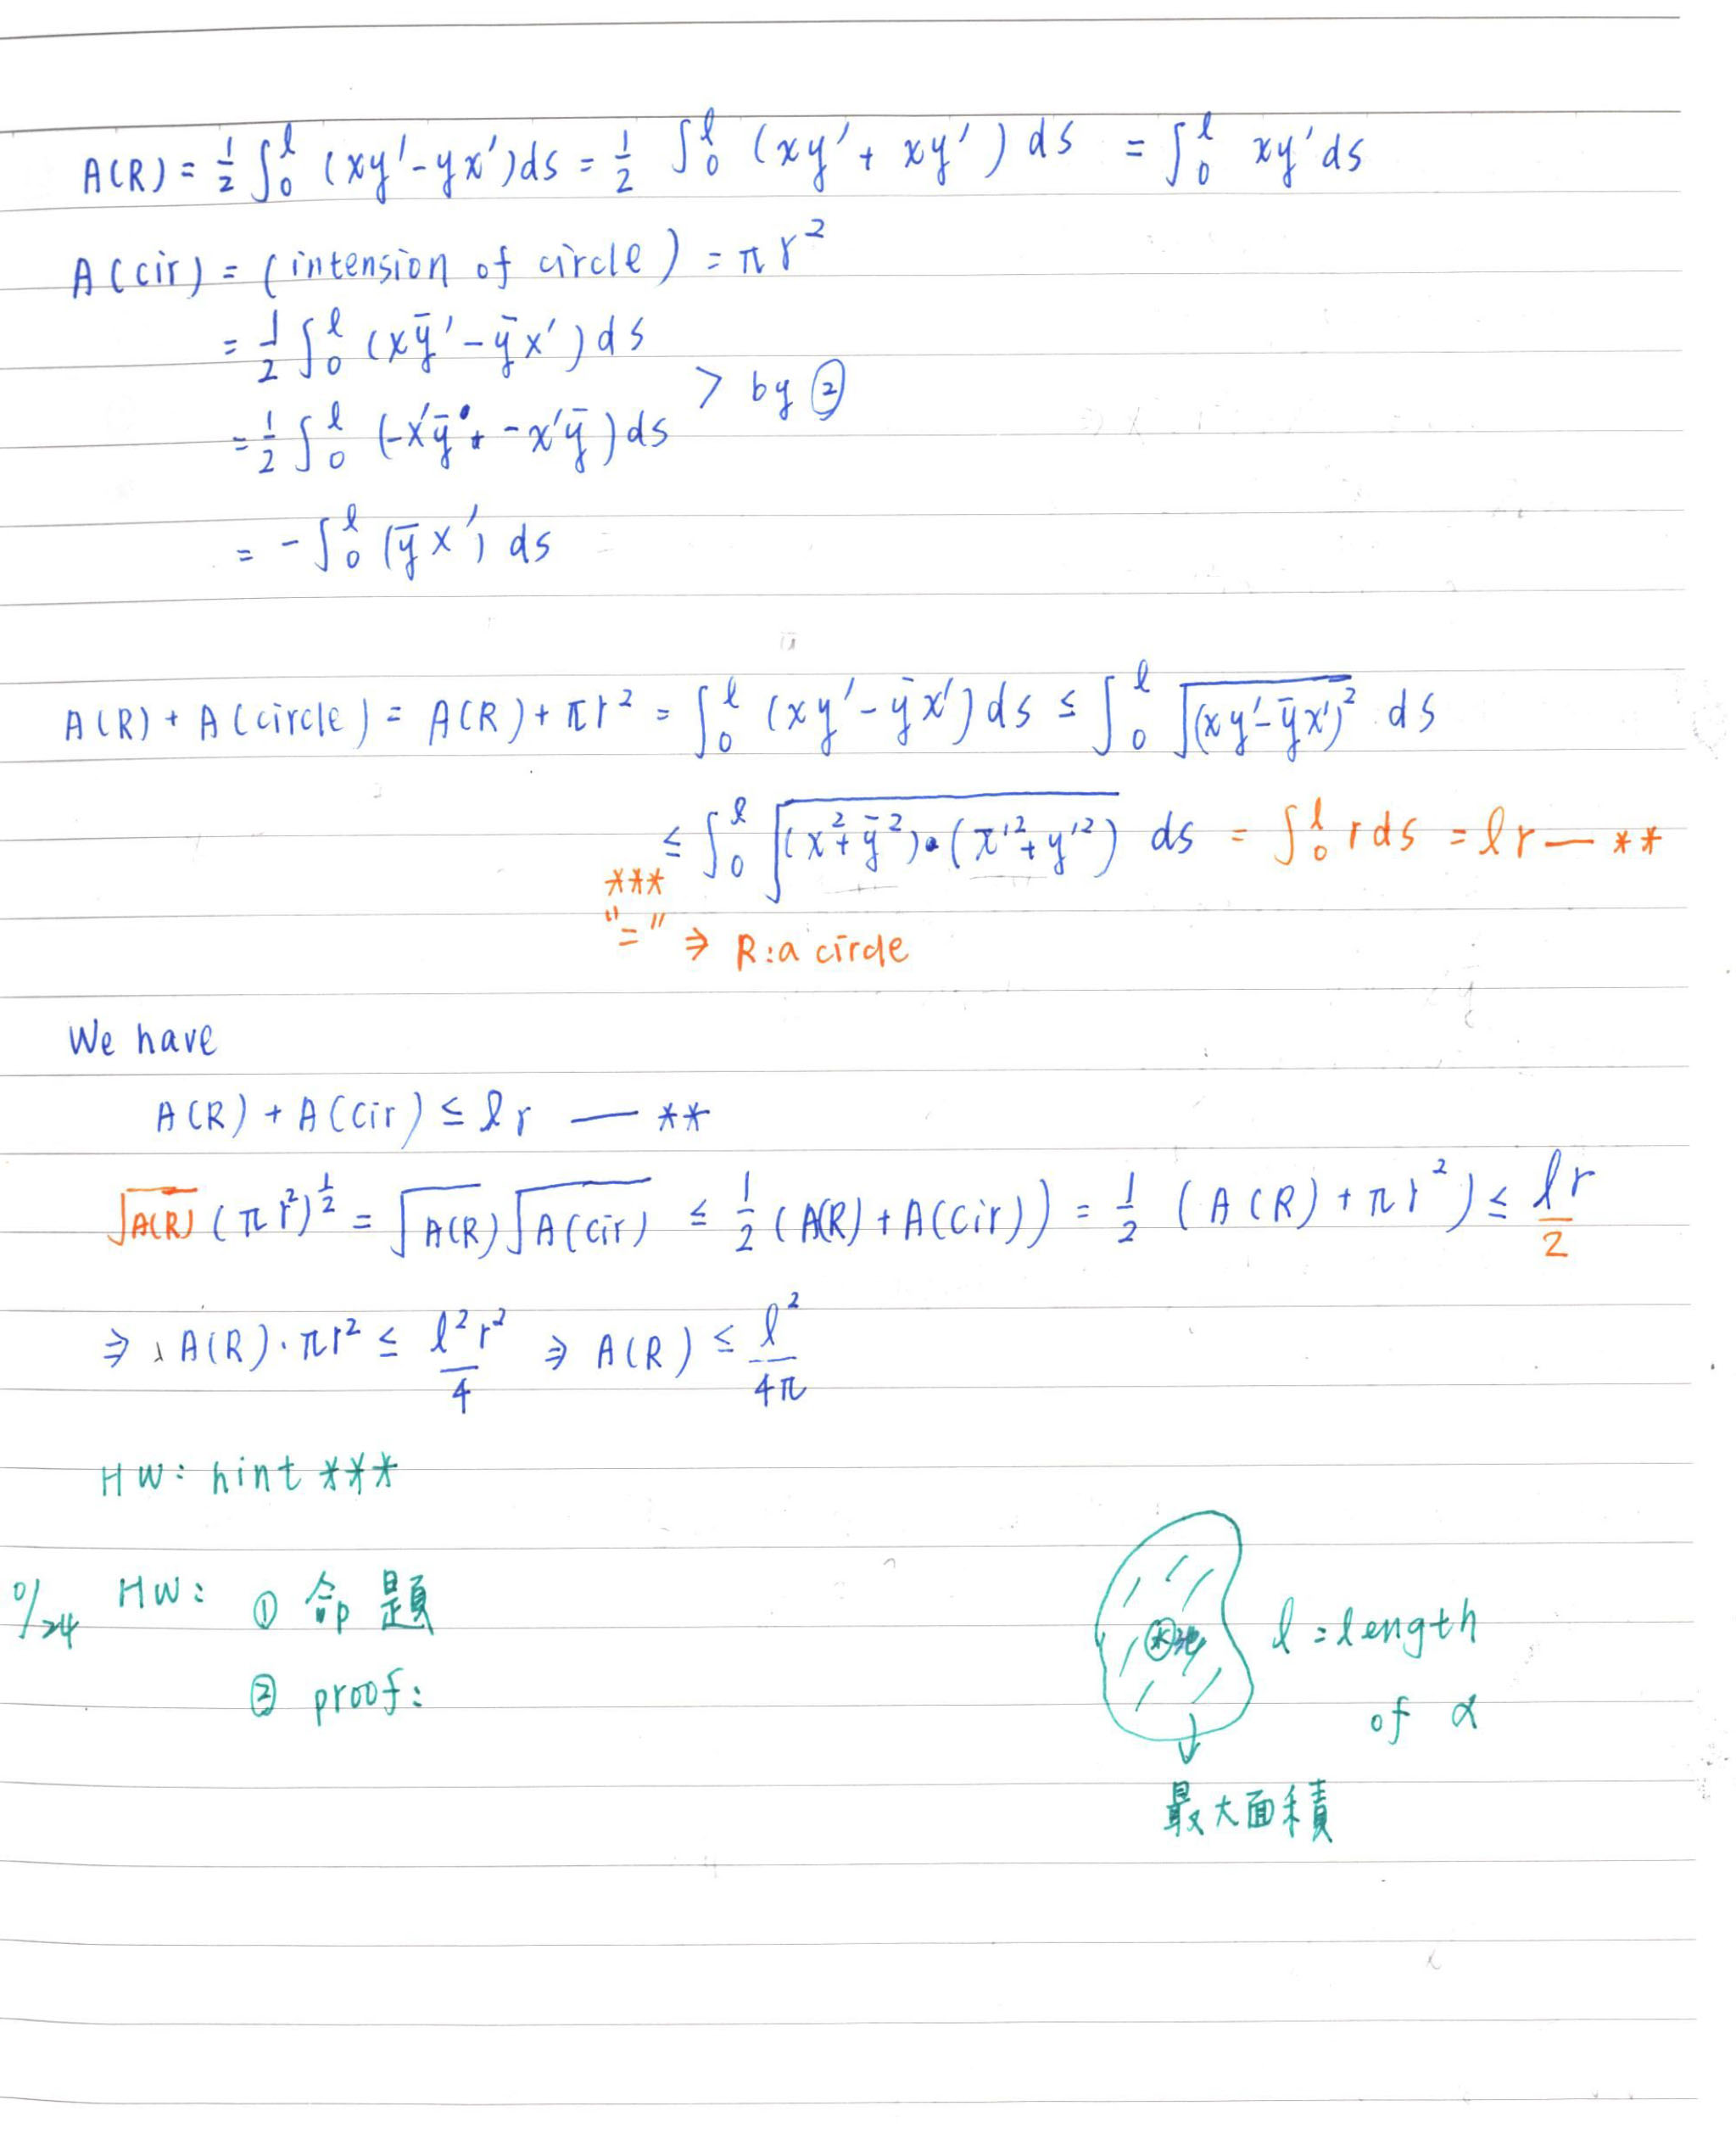 A(R) = 1/2 ∫₀ˡ (xy' - yx')ds = 1/2 ∫₀ˡ (xy' + xy') ds = ∫₀ˡ xy'ds
A(cir) = (intension of circle) = πr²
= 1/2 ∫₀ˡ (xȳ' - ȳx') ds
> by ②
= 1/2 ∫₀ˡ (-x'ȳ + -x'ȳ) ds
= - ∫₀ˡ (ȳx') ds
A(R) + A(circle) = A(R) + πr² = ∫₀ˡ (xy' - ȳx') ds ≤ ∫₀ˡ √(xy' - ȳx')² ds
≤ ∫₀ˡ √(x² + ȳ²)·(x'² + y'²) ds = ∫₀ˡ r ds = lr — **
***
"=" ⇒ R: a circle
We have
A(R) + A(Cir) ≤ lr — **
√A(R) (πr²)^½ = √A(R) √A(Cir) ≤ 1/2 (A(R) + A(Cir)) = 1/2 (A(R) + πr²) ≤ lr/2
⇒ A(R)·πr² ≤ l²r²/4 ⇒ A(R) ≤ l²/4π
HW: hint ***
HW: ① 命題
② proof:
l = length
of α
最大面積